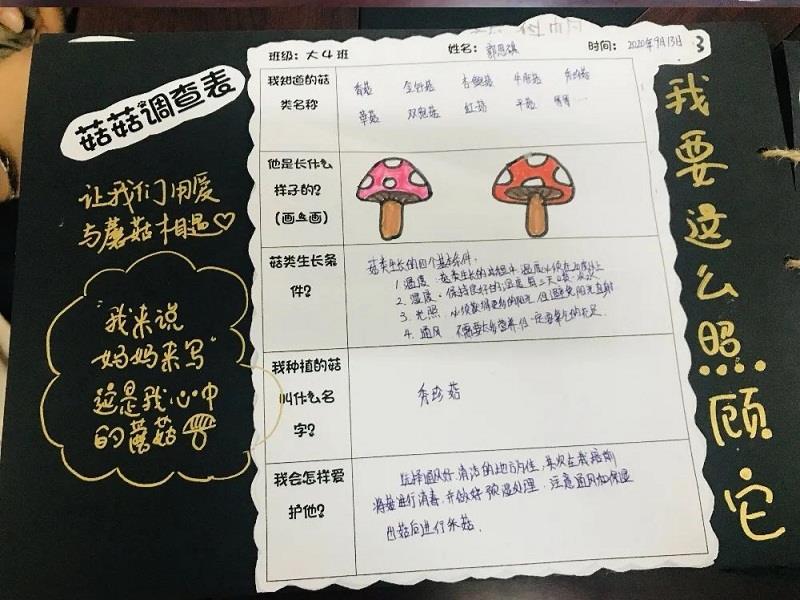 菇菇调查表
让我们用爱
与蘑菇相遇
"我来说
妈妈来写"
这是我心中
的蘑菇
班级：大4班
姓名：
时间：2020年9月13日
3
我知道的菇
类名称
香菇 金针菇 杏鲍菇 牛肝菇 秀珍菇
草菇 双孢菇 红菇 平菇 等等……
他是长什么
样子的？
(画一画)
菇类生长条
件？
菇类生长的四个基本条件：
1. 温度：菇类生长的
2. 湿度：保持良好的湿度
3. 光照 但避免阳光直射
4. 通风 不需要太多营养但一定要氧气的充足.
我种植的菇
叫什么名
字？
秀珍菇
我会怎样爱
护他？
选择通风好，清洁的地方
将菇进行消毒，并做好预湿处理，注意通风加保湿
出菇后进行采菇.
我要这么照顾它